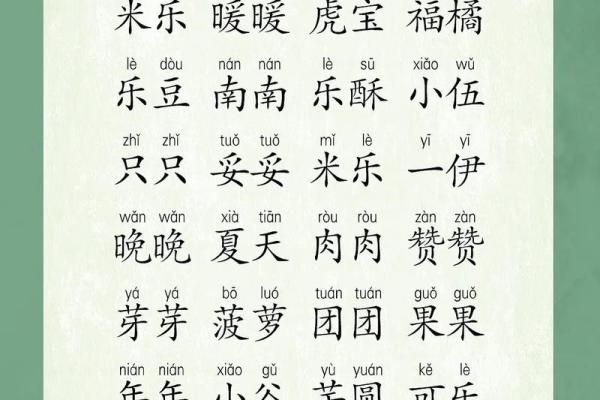 米乐 暖暖 虎宝 福橘
lè dòu nán nán lè sū xiǎo wǔ
乐豆 南南 乐酥 小伍
zhǐ zhǐ tuǒ tuǒ mǐ lè yī yī
只只 妥妥 米乐 一伊
wǎn wǎn xià tiān ròu ròu zàn zàn
晚晚 夏天 肉肉 赞赞
yá yá bō luó tuán tuán guǒ guǒ
芽芽 菠萝 团团 果果
nián nián xiǎo gǔ yù yuán kě lè
年年 小谷 芋圆 可乐